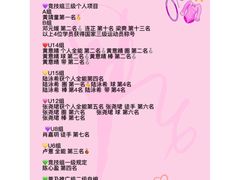 💜竞技组三级个人项目
A组
黄清童第一名🥇
B组
邓元媛 第二名🥈 连芷 第十名 梁爽 第十三名
以上4位学员获得国家三级运动员称号
❤️U14组
黄意晴 个人全能 第二名🥈 黄意晴 圈 第二名🥈
黄意晴 球 第二名🥈 黄意晴 棒 第二名🥈
黄意晴 带 第二名🥈
💜U15组
陆泳希 获个人全能第四名
陆泳希 圈 第一名🥇 陆泳希 球 第4名
陆泳希 棒 第6名 陆泳希 带 第6名
💜U12组
张尧珺获个人全能第五名 张尧珺 徒手 第六名
张尧珺 绳 第六名 张尧珺 圈 第六名
张尧珺 棒 第二名🥈
💜U8组
肖嘉玥 徒手 第七名
💜U6组
卢薏 全能 第三名🥉
💜竞技组一级规定
陈心盈 第四名